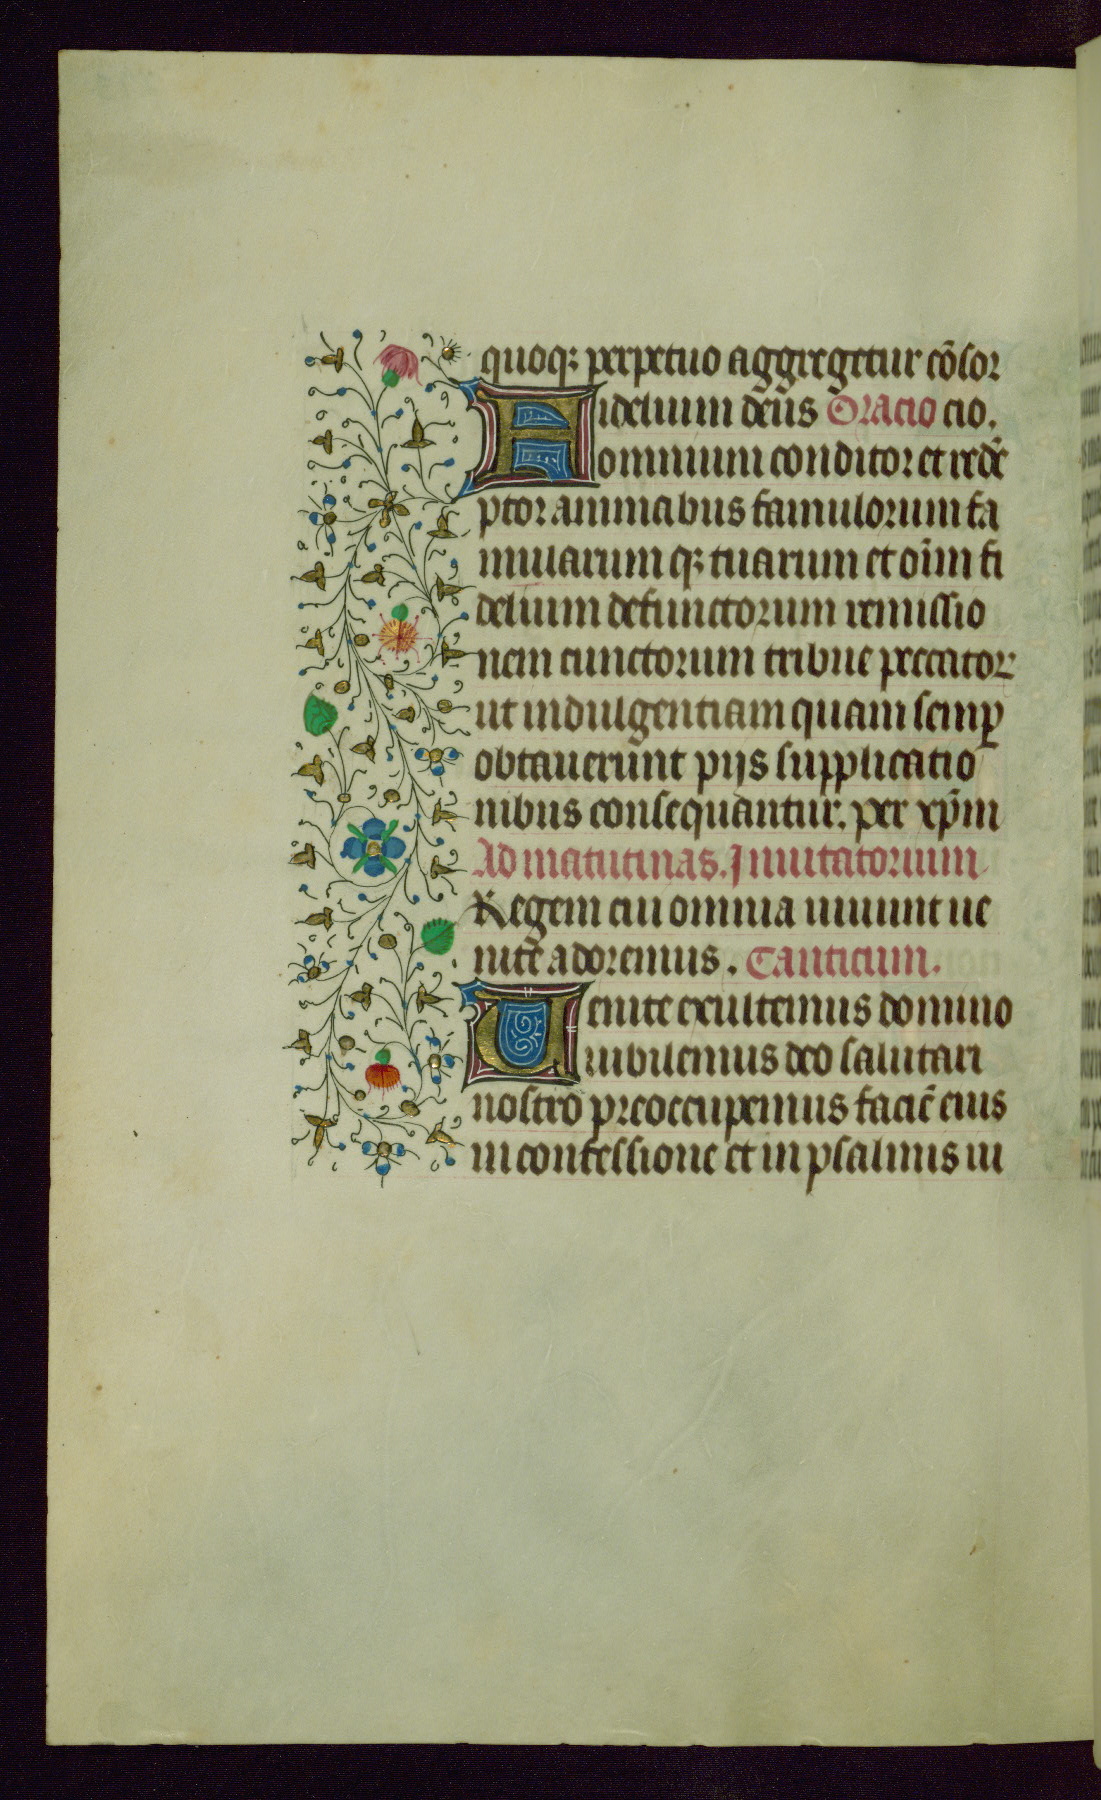 quoqꝫ perpetuo aggregetur cōsor
Fidelium deus Oracio cio.
omnium conditor et redē
ptor animabus famulorum fa
mularum qꝫ tuarum et oīm fi
delium defunctorum remissio
nem cunctorum tribue peccator
ut indulgentiam quam semꝑ
obtauerunt pijs supplicatio
nibus consequantur. per xp̄m
Ad matutinas. Inuitatorium
Regem cui omnia uiuunt ue
nite adoremus. Canticum.
Uenite exultemus domino
iubilemus deo salutari
nostro preoccupemus faciē eius
in confessione et in psalmis iu